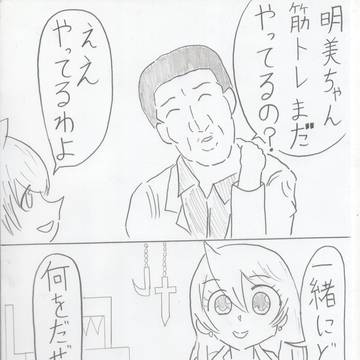 明美ちゃん
筋トレまだ
やってるの？
ええ
やってるわよ
一緒にど
何をだぜ